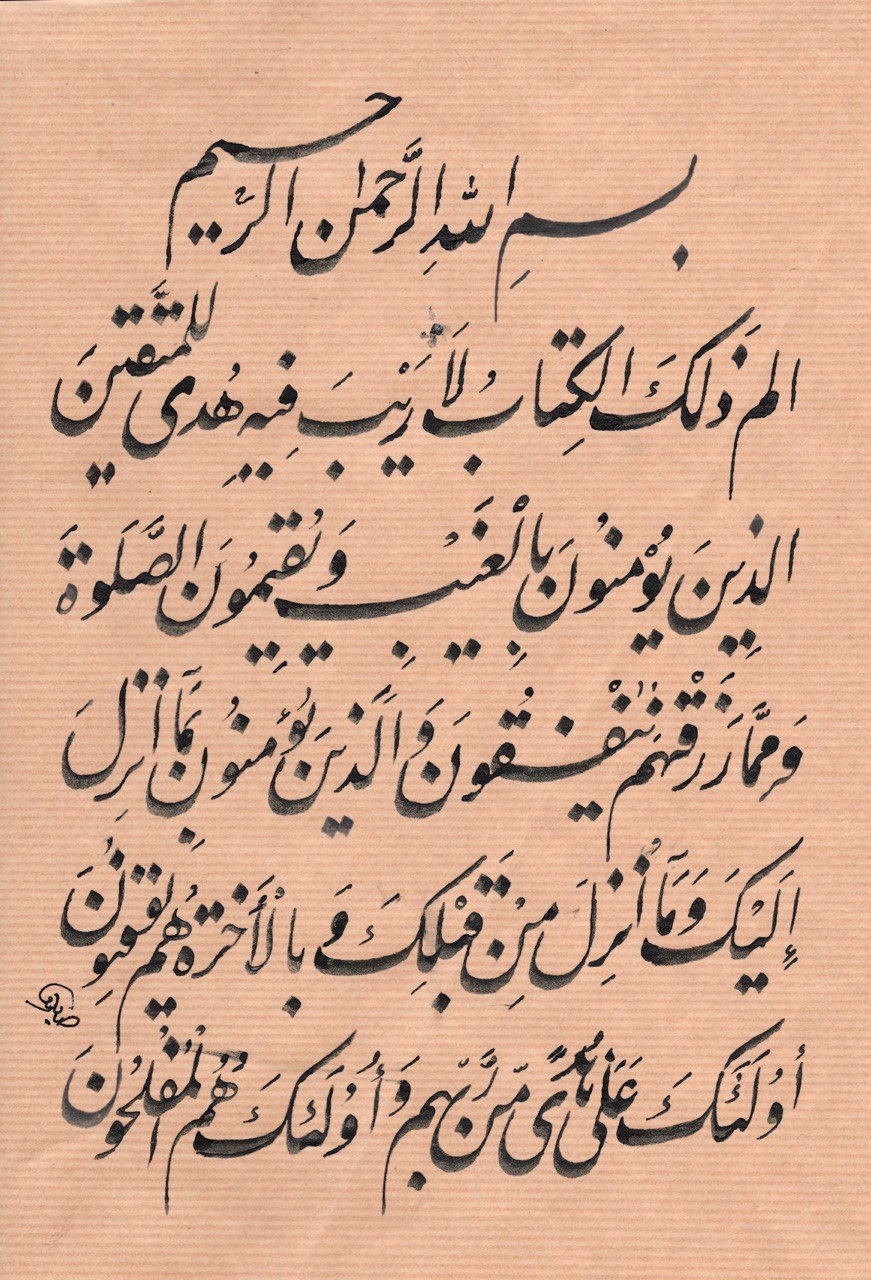 بسمِ اللهِ الرَّحمٰن الرَّحیم
الم ذَلکَ الکِتابُ لَا رَیْبَ فِیه هُدی للمتَّقینَ
الذِینَ یُوْمنُونَ بِالْغَیْبِ وَ یُقیِمُونَ الصَّلَوةَ
وَ ممَّا رَزَقْنٰهُم یُنْفِقُونَ وَ الَّذینَ یُؤمنُون بَمآ اُنزِلَ
إِلَیْکَ وَ مَآ اُنزِلَ مِنْ قَبْلِکَ وَ بالْأَخرَة هُم یُوقنِوُنَ
أوُلَئَکَ عَلَی هُدًی مّن رَّبّهم وَ أُوْلَئکَ هُمُ الْمُفْلحُونَ